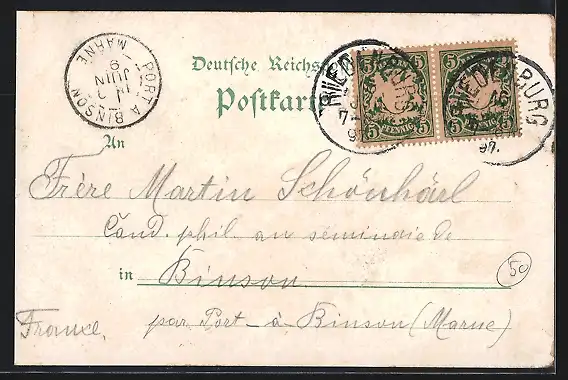 PORT A BINSON
JUIN
MARNE
Deutsche Reichs
Postkarte
5 5
PFENNIG
5 5
RIEDENBURG
97.
An
Frère Martin Schönhärl
Cand. phil. au seminaire de
in Binson.
50
France, par Port-à-Binson (Marne)